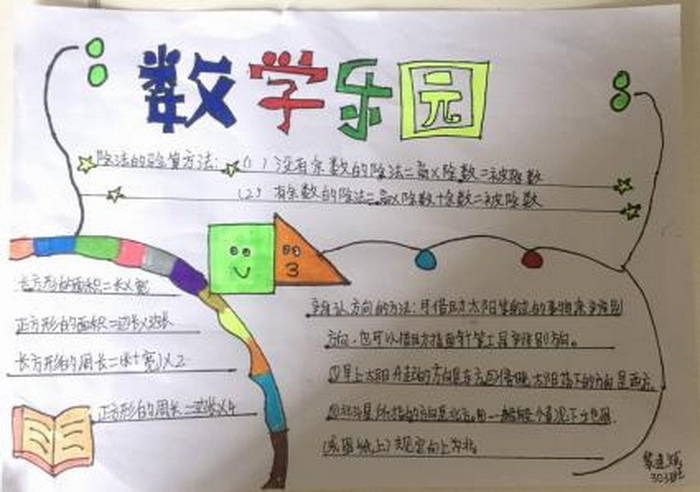 数学乐园
除法的验算方法：(1)没有余数的除法=商×除数=被除数
(2)有余数的除法=商×除数+余数=被除数
3
长方形的面积=长×宽
正方形的面积=边长×边长
长方形的周长=(长+宽)×2
正方形的周长=边长×4
辨认方向的方法：可借助太阳等
方向，也可以借助指南针等工具辨别方向。
①早上太阳升起的方向是东方
太阳落下的方向是西方
指的方向是北方
规定向上为北
303班